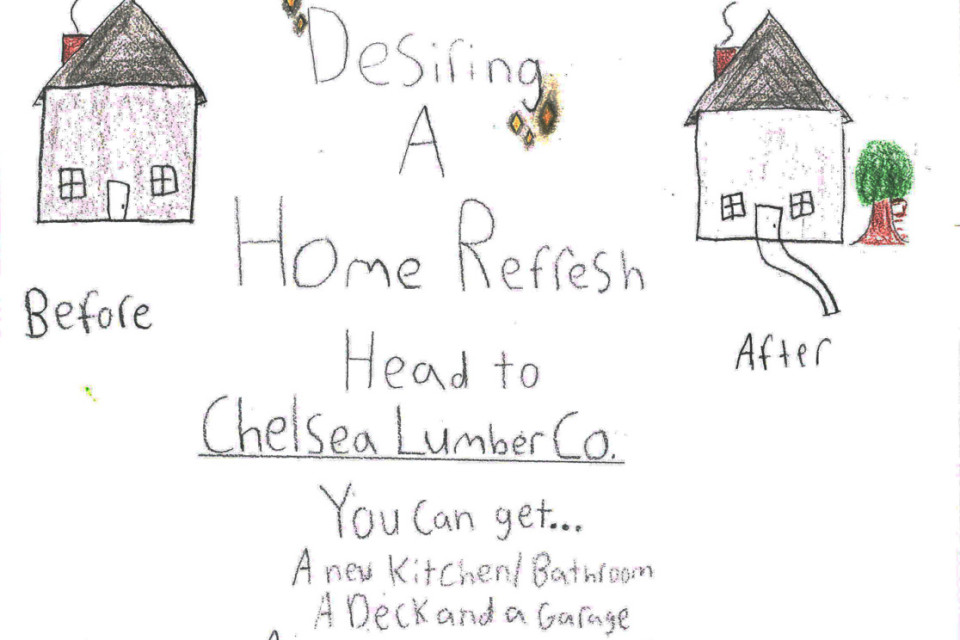 Desiring
A
Home Refresh
Before
After
Head to
Chelsea Lumber Co.
You can get...
A new Kitchen/Bathroom
A Deck and a Garage